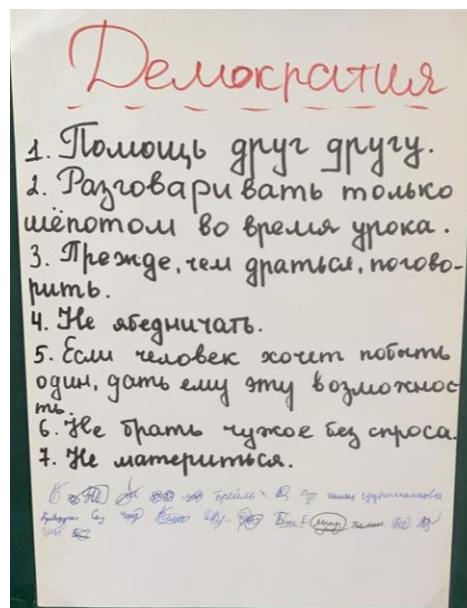 Демократия
1. Помощь друг другу.
2. Разговаривать только
шёпотом во время урока.
3. Прежде, чем драться, погово-
рить.
4. Не ябедничать.
5. Если человек хочет побыть
один, дать ему эту возможнос-
ть.
6. Не брать чужое без спроса.
7. Не материться.